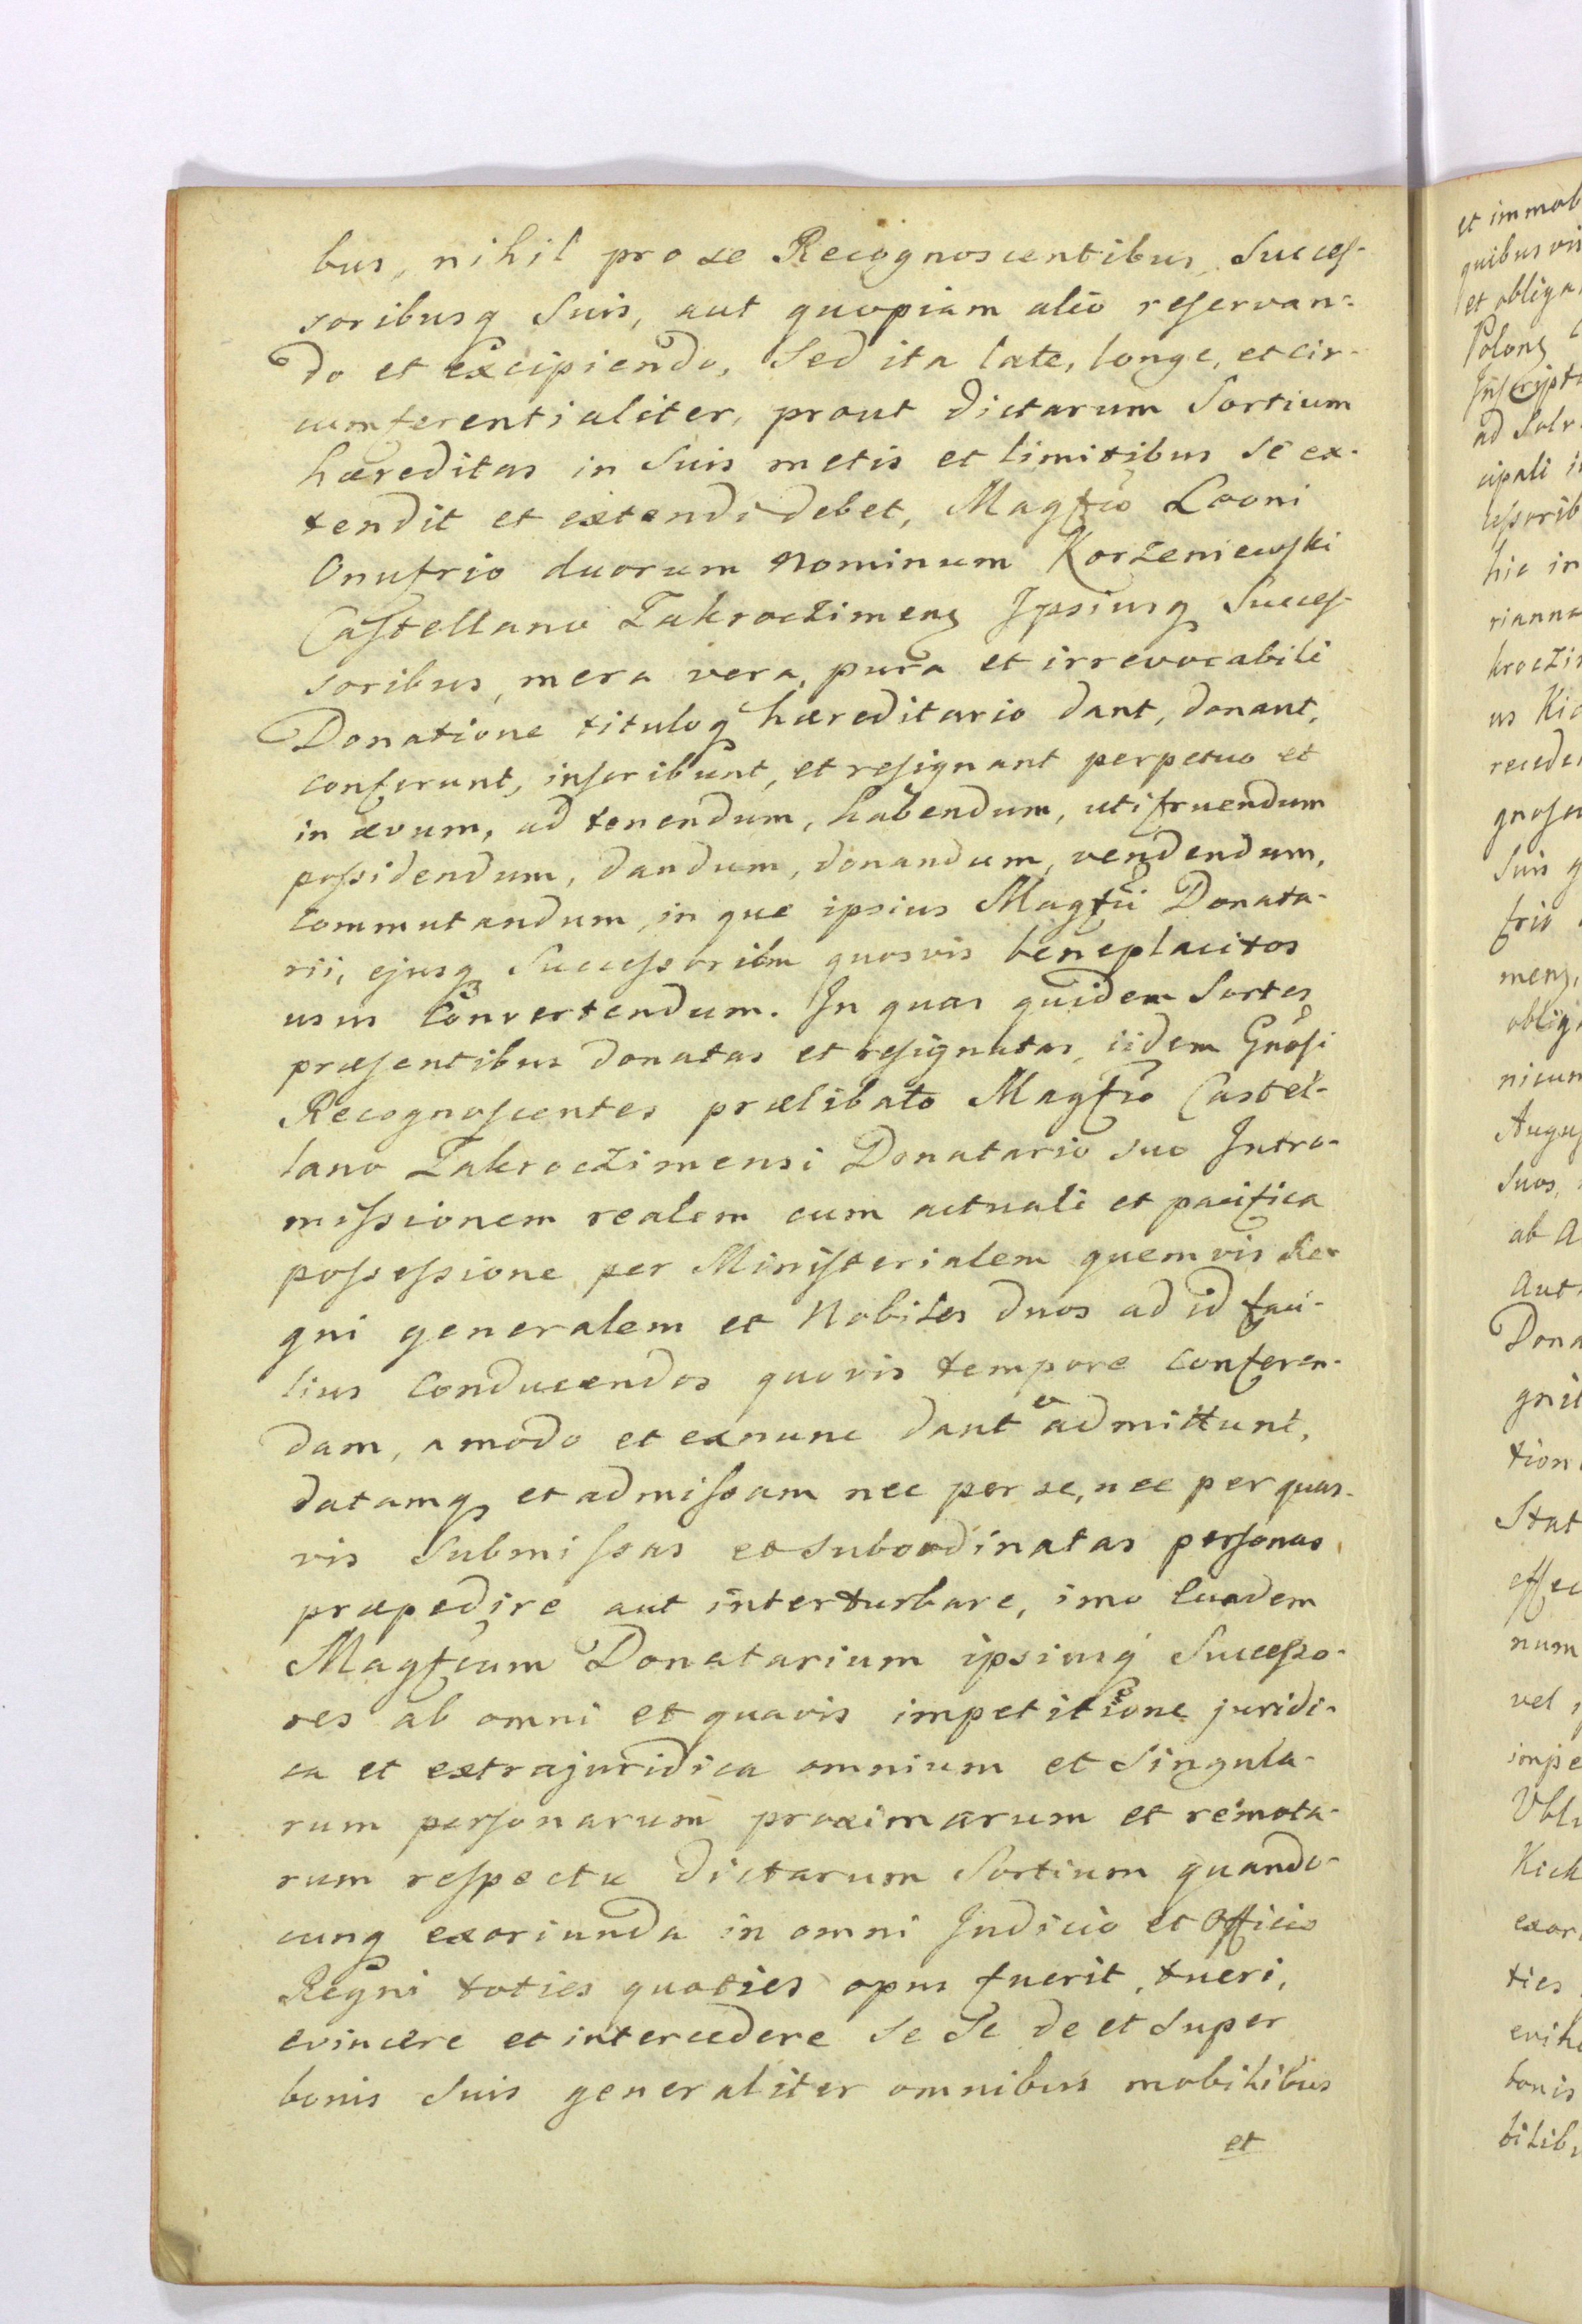 bus, nihil pro se Recognoscentibus, Succes-
soribusq Suis, aut quopiam alio reservan-
do et excipiendo, Sed ita late, longe, et cir-
cumferentialiter, prout dictarum Sortium
hæreditas in Suis metis et limitibus se ex-
tendit et extendi debet, Magfco Leoni
Onufrio duorum Nominum Korzeniewski
Castellano Zakroczimens Ipsiusq Succes-
soribus, mera vera, pura et irrevocabili
Donatione tituloq hæreditario dant, donant,
conferunt, inscribunt, et resignant perpetuo et
in ævum, ad tenendum, habendum, utifruendum
possidendum, dandum, donandum, vendendum,
commutandum, in que ipsius Magfci Donata-
rii, ejusq Successorum quosvis beneplacitos
usus convertendum. In quas quidem Sortes
præsentibus donatas et resignatas, iidem Gnosi
Recognoscentes prælibato Magfco Castel-
lano Zakroczimensi Donatario suo Intro-
missionem realem cum actuali et pacifica
possessione per Ministerialem quemvis Re-
gni generalem et Nobiles duos ad id faci-
lius conducendos quovis tempore conferen-
dam, amodo et exnunc dant et admittunt,
datamq et admissam nec per se, nec per quas-
vis Submissas et subordinatas personas
præpedire aut interturbare, imo Eundem
Magfcum Donatarium ipsiusq Successo-
res ab omni et quavis impetitione juridi-
ca et extrajuridica omnium et Singula-
rum personarum proximarum et remota-
rum respectu dictarum Sortium quando-
cunq exoriunda in omni Judicio et Officio
Regni toties quoties opus fuerit, tueri,
evincere et intercedere Se Se de et Super
bonis Suis generaliter omnibus mobilibus
et
et immob
quibus vis
et obliga
Polons
Inscripto
ad Solv
cipali i
cessorib
hic in
rianna
kroczi
us Kic
recede
gnosc
Suis q
frio
mens,
oblig
nicum
Augus
Suos,
ab a
aut
Dona
gnit
tion
Stat
effec
num
vel
impe
Ubli
Kick
exor
ties
evin
bonis
bilib